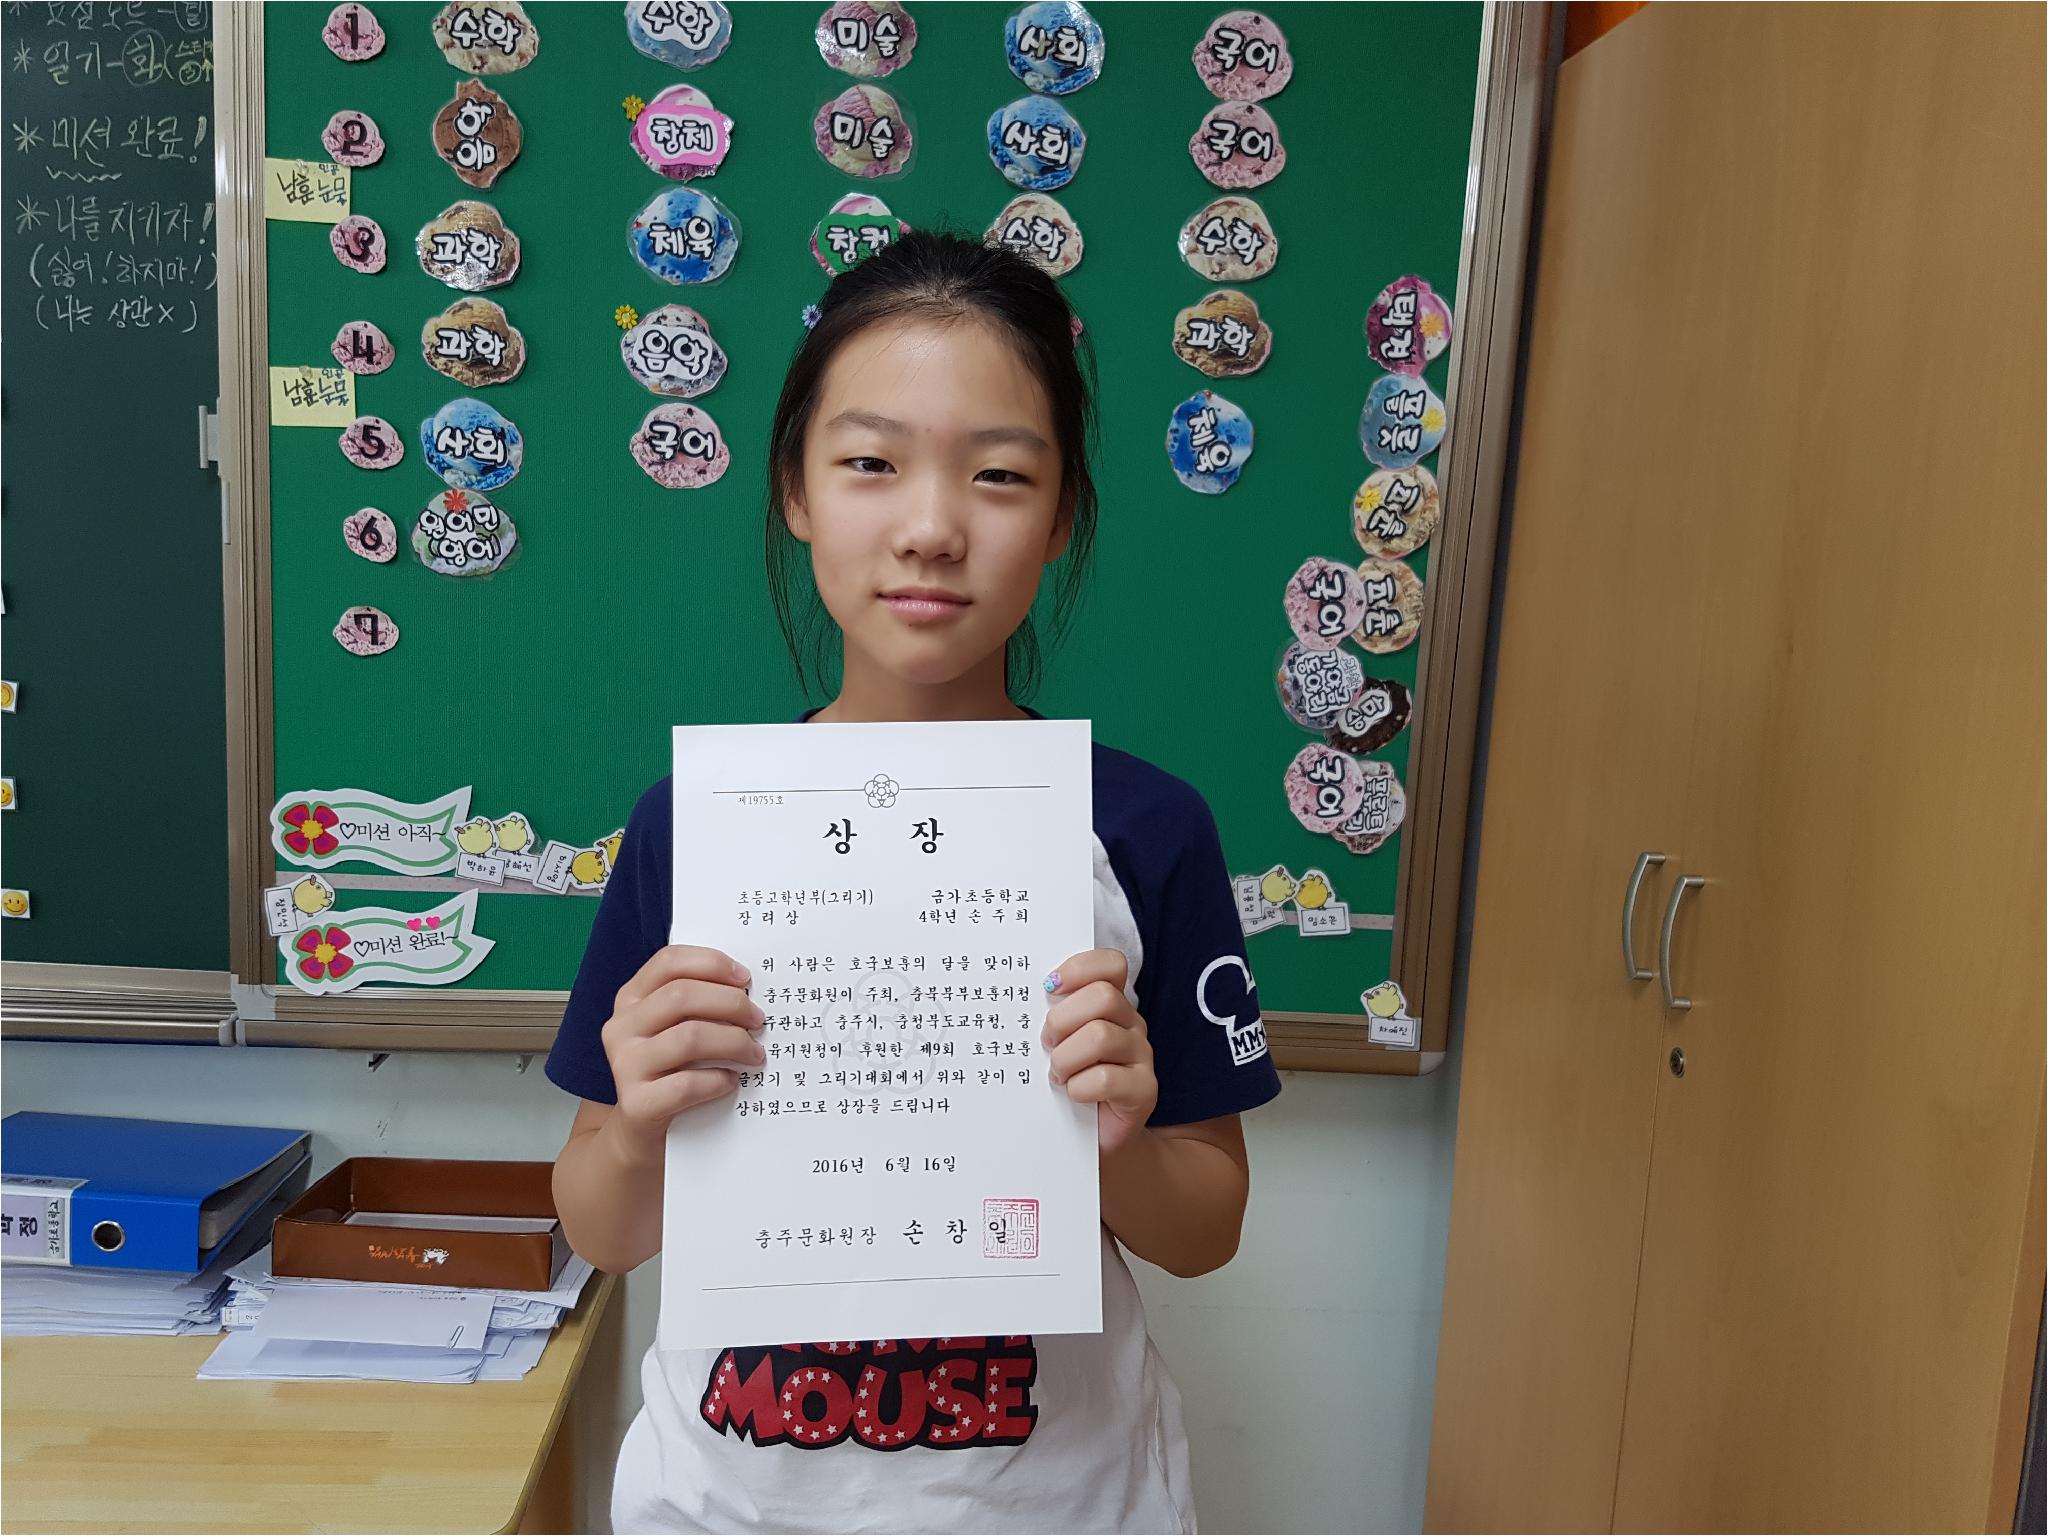 * 일기-화
* 미션 완료!
* 나를 지키자!
(싫어! 하지마!)
(나는 상관 x)
1 수학 수학 미술 사회 국어
2 창체 미술 사회 국어
3 과학 체육 수학 수학
4 과학 음악 과학
5 사회 국어 체육
6 원어민 영어
7
남훈 인공 눈물
남훈 인공 눈물
국어
국어
♡미션 아직~
박하음
♡미션 완료!~
임소헌
차예진
제19755호
상 장
초등고학년부(그리기) 금가초등학교
장 려 상 4학년 손 주 희
위 사람은 호국보훈의 달을 맞이하
충주문화원이 주최, 충북북부보훈지청
주관하고 충주시, 충청북도교육청, 충
육지원청이 후원한 제9회 호국보훈
글짓기 및 그리기대회에서 위와 같이 입
상하였으므로 상장을 드립니다
2016년 6월 16일
충주문화원장 손 창 일
MOUSE